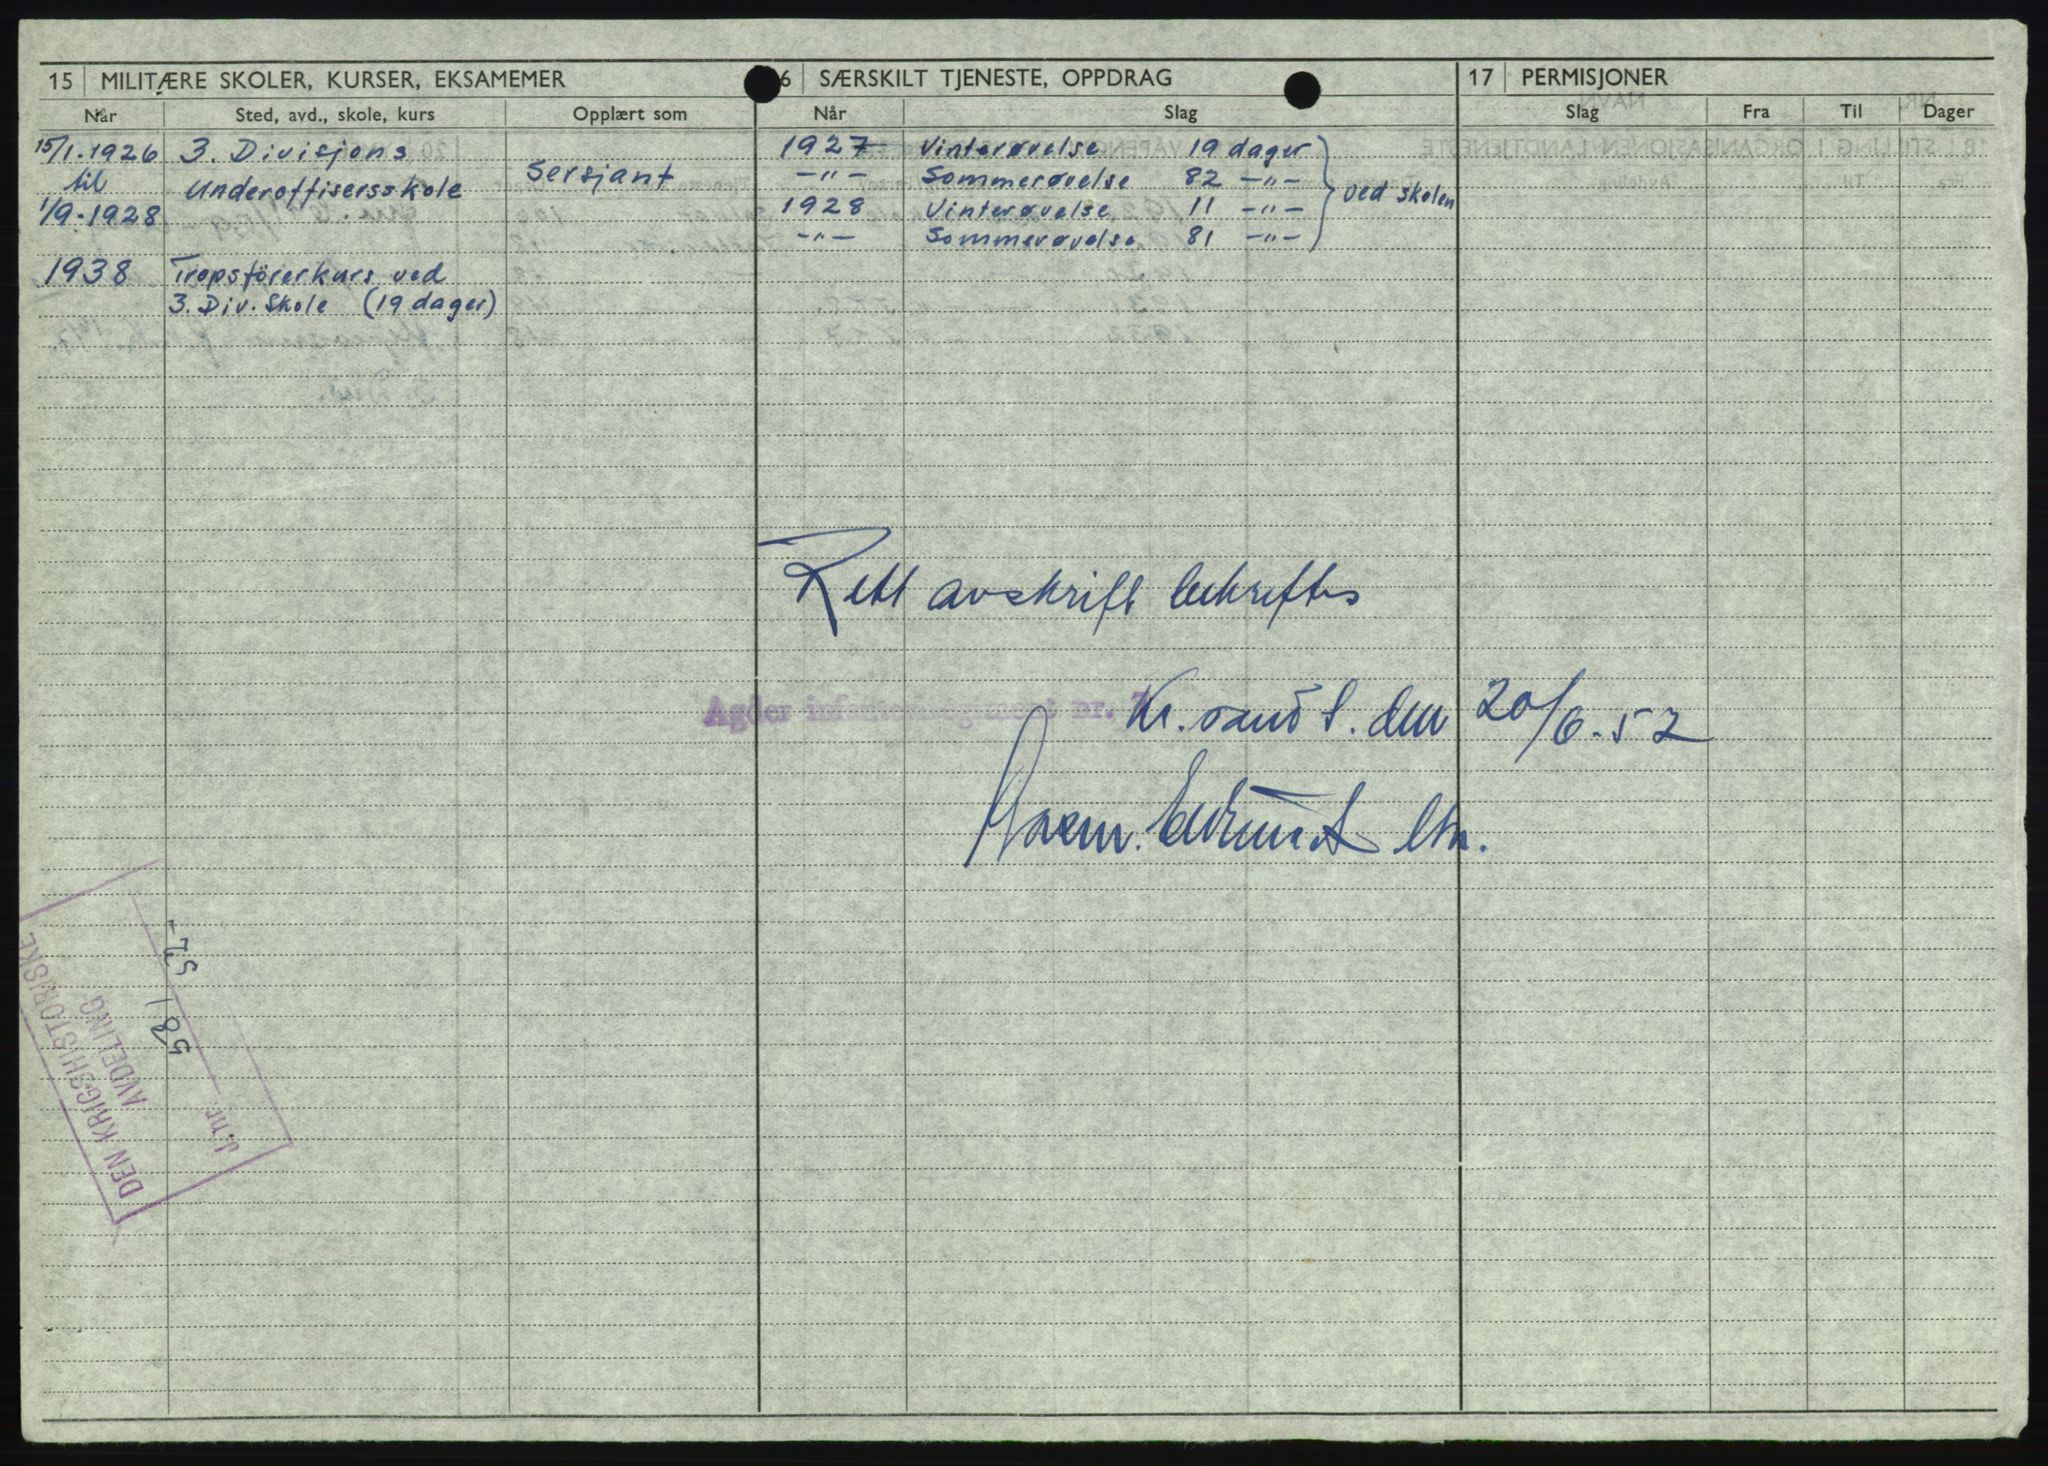 15 MILITÆRE SKOLER, KURSER, EKSAMEMER
Når Sted, avd., skole, kurs Opplært som
15/1.1926 3. Divisjons
til Underoffisersskole Sersjant
1/9.1928
1938 Troppsförerkurs ved
3. Div. Skole (19 dager)
6 SÆRSKILT TJENESTE, OPPDRAG
Når Slag
1927 Vinterøvelse 19 dager
-"- Sommerøvelse 82 -"-
1928 Vinterøvelse 11 -"-
-"- Sommerøvelse 81 -"-
ved skolen
17 PERMISJONER
Slag Fra Til Dager
Rett avskrift bekreftes
Agder infanteriregiment nr. 7
Kr.sand S. den 20/6.52
DEN KRIGSHISTORISKE
AVDELING
J.nr. 581 52-